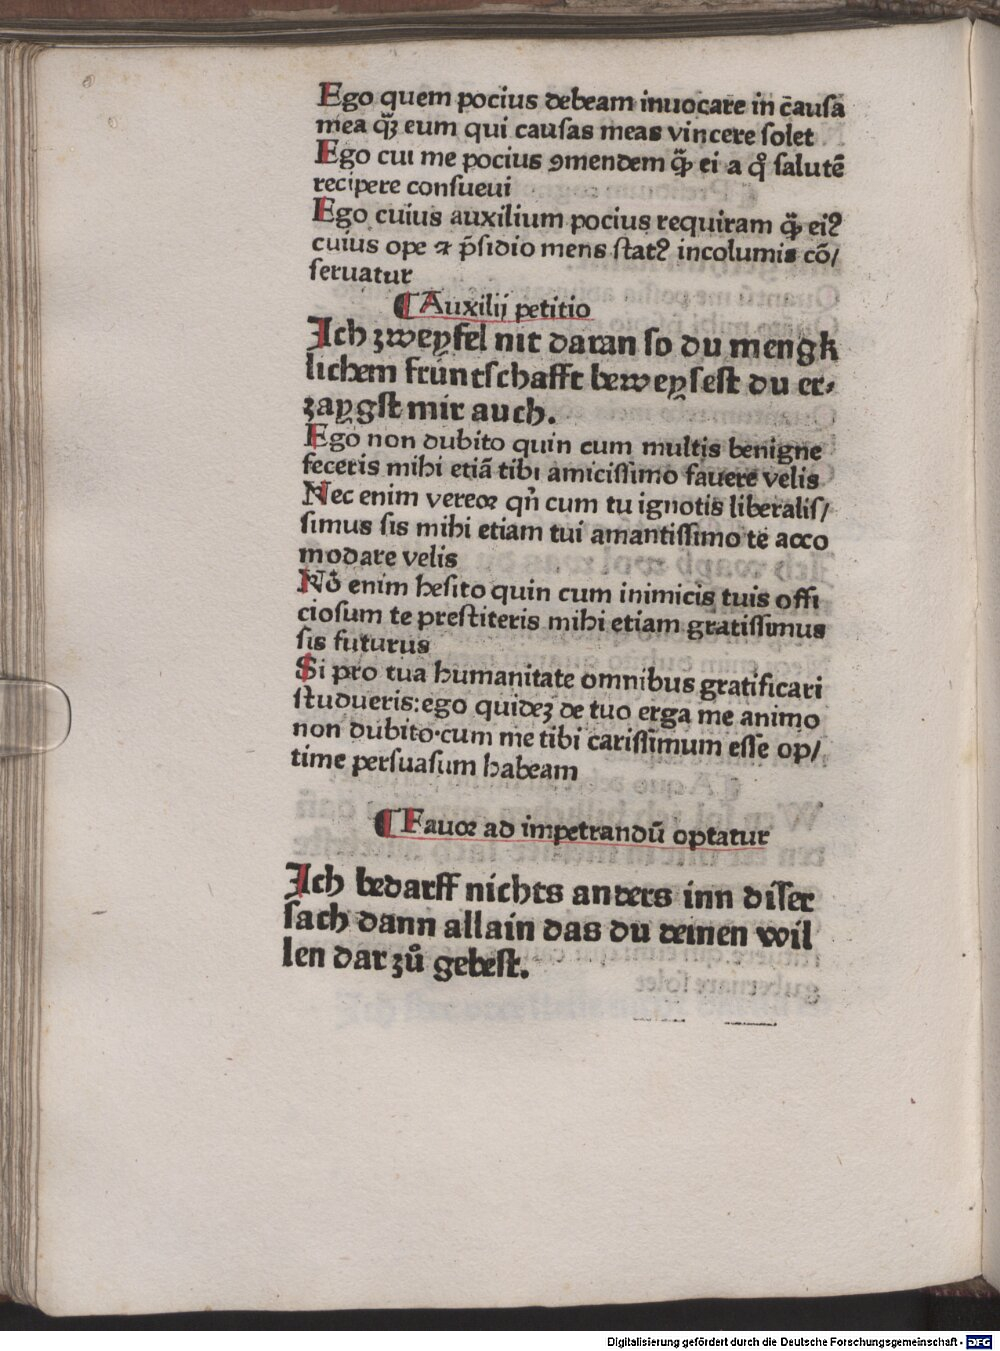 Ego quem pocius debeam inuocare in causa
mea qꝫ̃ eum qui causas meas vincere solet
Ego cui me pocius ꝯmendem q̃ꝫ ei a qͦ salutẽ
recipere consueui
Ego cuius auxilium pocius requiram q̃ꝫ ei?
cuius ope ⁊ p̃sidio mens stat? incolumis cõ/
seruatur
¶ Auxilij petitio
Ich zweyfel nit daran so du mengk
lichem früntschafft beweysest du er-
zaygst mir auch.
Ego non dubito quin cum multis benigne
feceris mihi etiã tibi amicissimo fauere velis
Nec enim vereoꝛ qñ cum tu ignotis liberalis/
simus sis mihi etiam tui amantissimo te acco
modare velis
Nõ enim hesito quin cum inimicis tuis offi
ciosum te prestiteris mihi etiam gratissimus
sis futurus
Si pro tua humanitate omnibus gratificari
studueris: ego quideꝫ de tuo erga me animo
non dubito·cum me tibi carissimum esse op/
time persuasum habeam
¶ Fauoꝛ ad impetrandũ optatur
Ich bedarff nichts anders inn diser
sach dann allain das du deinen wil
len dar zuͦ gebest.
Digitalisierung gefördert durch die Deutsche Forschungsgemeinschaft - DFG